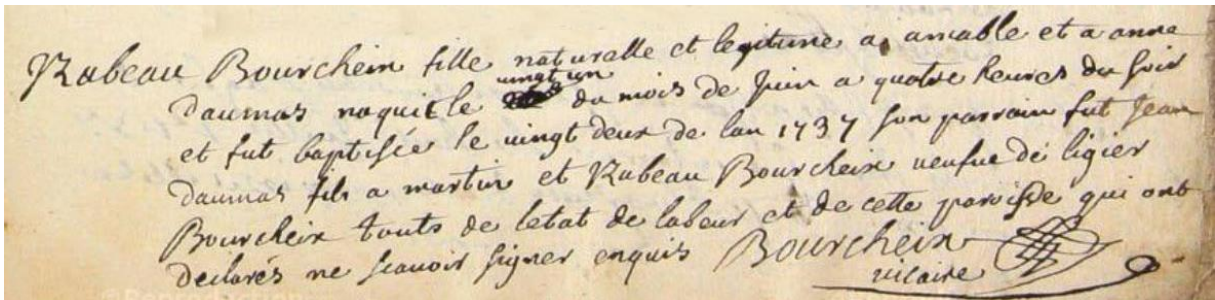 Rabeau Bourcheix fille naturelle et legitime a amable et a anne
vingt un
daumas naquit le du mois de Juin a quatre heures du soir
et fut baptisée le vingt deux de lan 1737 son parrain fut Jean
daumas fils a martin et Rabeau Bourcheix veufve de ligier
Bourcheix touts de letat de labeur et de cette paroisse qui ont
declarés ne scavoir signer enquis Bourcheix
vicaire